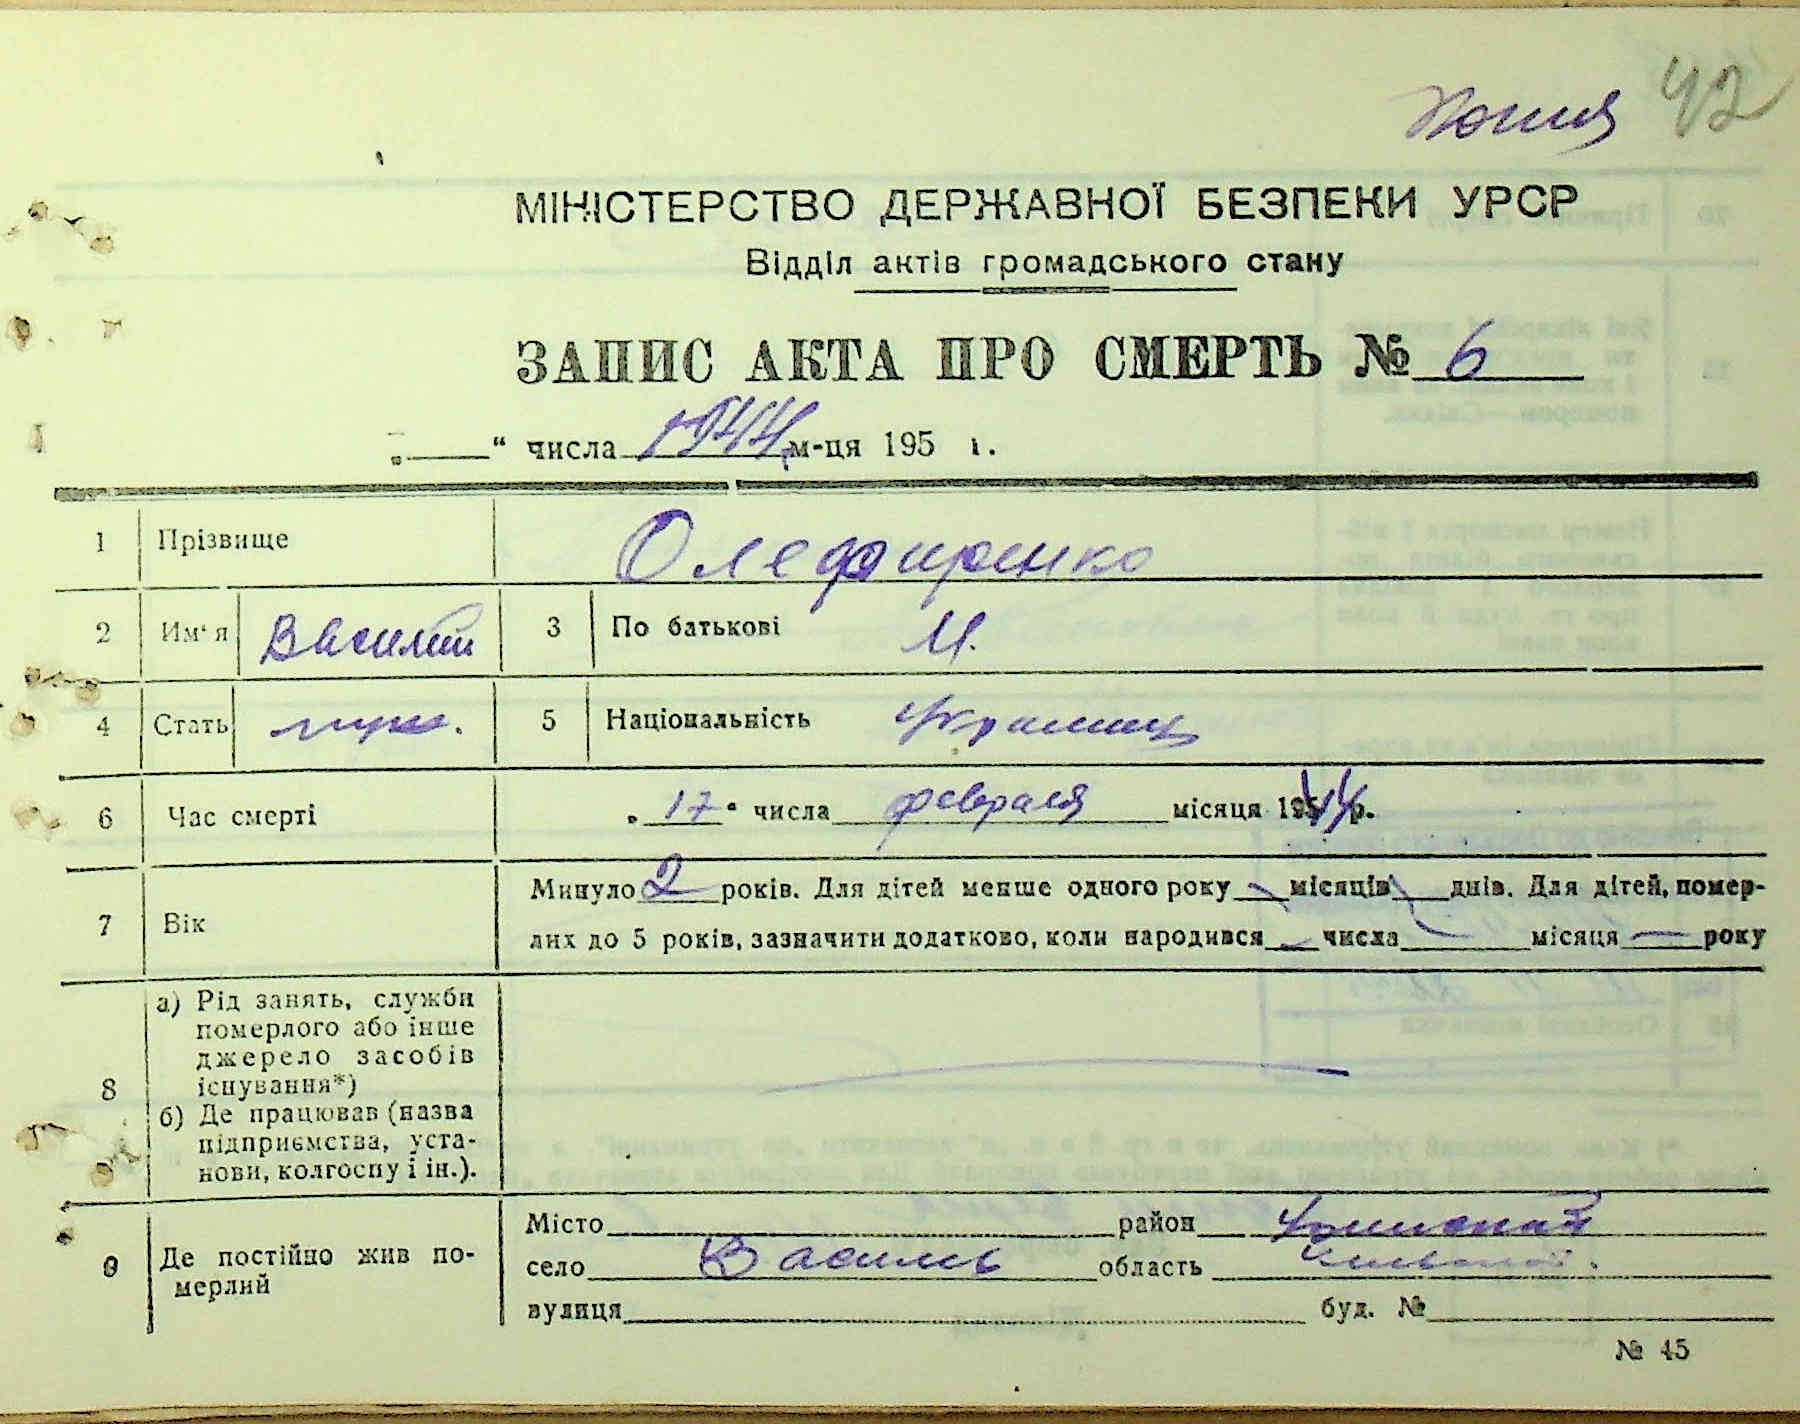 Копия 42
МІНІСТЕРСТВО ДЕРЖАВНОЇ БЕЗПЕКИ УРСР
Відділ актів громадського стану
ЗАПИС АКТА ПРО СМЕРТЬ № 6
„____“ числа 1944 м-ця 195 г.
1 Прізвище Олефиренко
2 Им'я Василий 3 По батькові И.
4 Стать муж. 5 Національність Украинец
6 Час смерті „17“ числа февраля місяця 1944 р.
7 Вік Минуло 2 років. Для дітей менше одного року — місяців — днів. Для дітей, помер-
лих до 5 років, зазначити додатково, коли народився — числа — місяця — року
8 а) Рід занять, служби
померлого або інше
джерело засобів
існування*)
б) Де працював (назва
підприємства, уста-
нови, колгоспу і ін.).
9 Де постійно жив по-
мерлий
Місто район
село Василів область
вулиця буд. №
№ 45